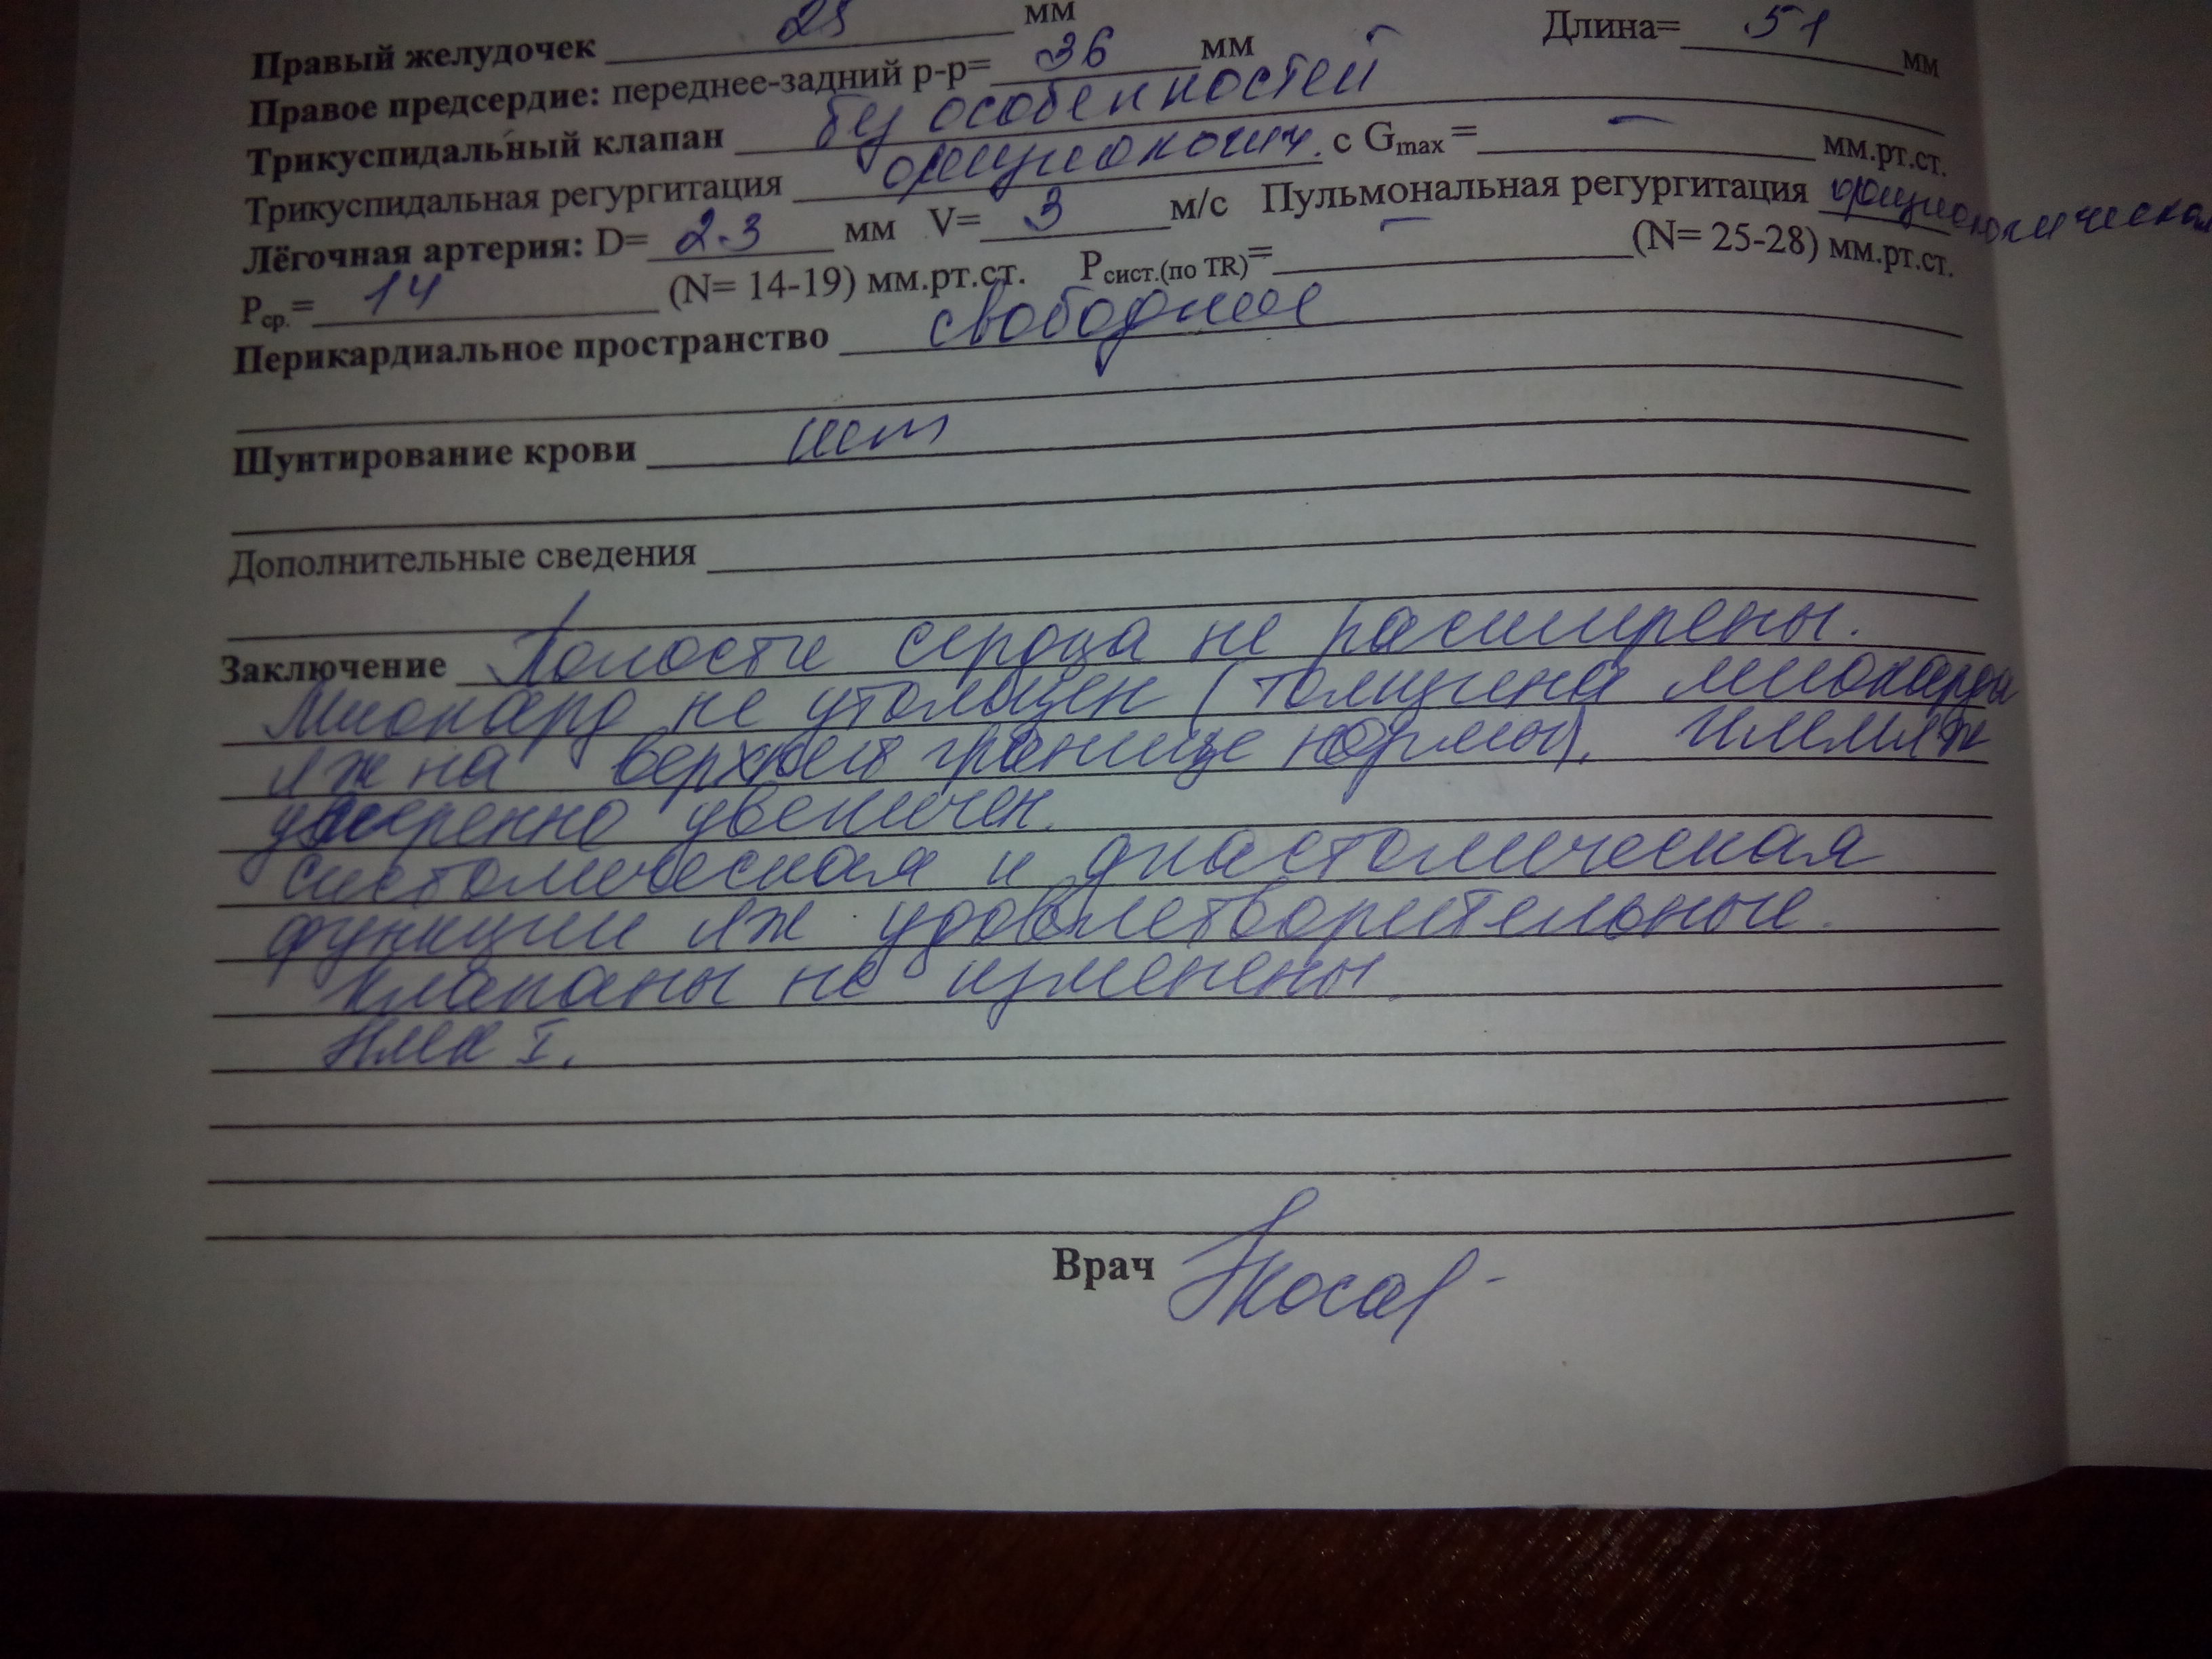 Правый желудочек 25 мм
Правое предсердие: переднее-задний р-р= 36 мм Длина= 51 мм
Трикуспидальный клапан без особенностей
Трикуспидальная регургитация физиологич. с Gmax= – мм.рт.ст.
Лёгочная артерия: D= 23 мм V= 3 м/с Пульмональная регургитация физиологическая
Рср.= 14 (N= 14-19) мм.рт.ст. Рсист.(по TR)= – (N= 25-28) мм.рт.ст.
Перикардиальное пространство свободное
Шунтирование крови нет
Дополнительные сведения
Заключение Полости сердца не расширены.
Миокард не утолщен (толщина миокарда
лж на верхней границе нормы). ИММЛЖ
умеренно увеличен.
Систолическая и диастолическая
функции лж удовлетворительные.
Клапаны не изменены.
НМК I.
Врач